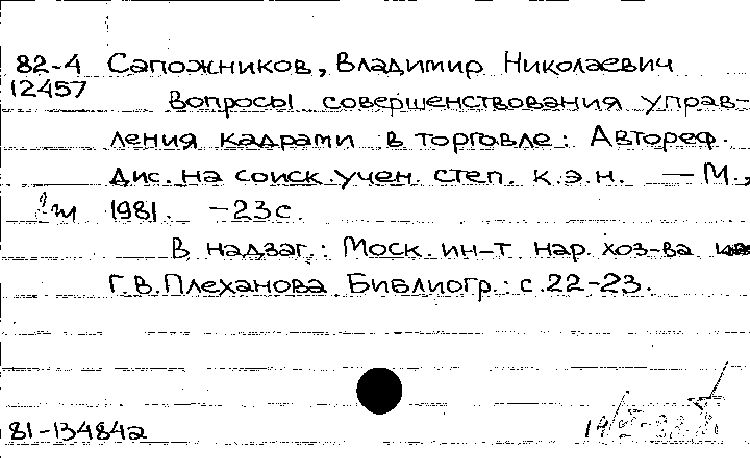 82-4 Сапожников, Владимир Николаевич
12457
Вопросы совершенствования управ-
ления кадрами в торговле: Автореф.
дис. на соиск. учен. степ. к.э.н. — М.,
1981. — 23 с.
В надзаг.: Моск. ин-т нар. хоз-ва
Г.В. Плеханова. Библиогр.: с. 22-23.
81-13484а